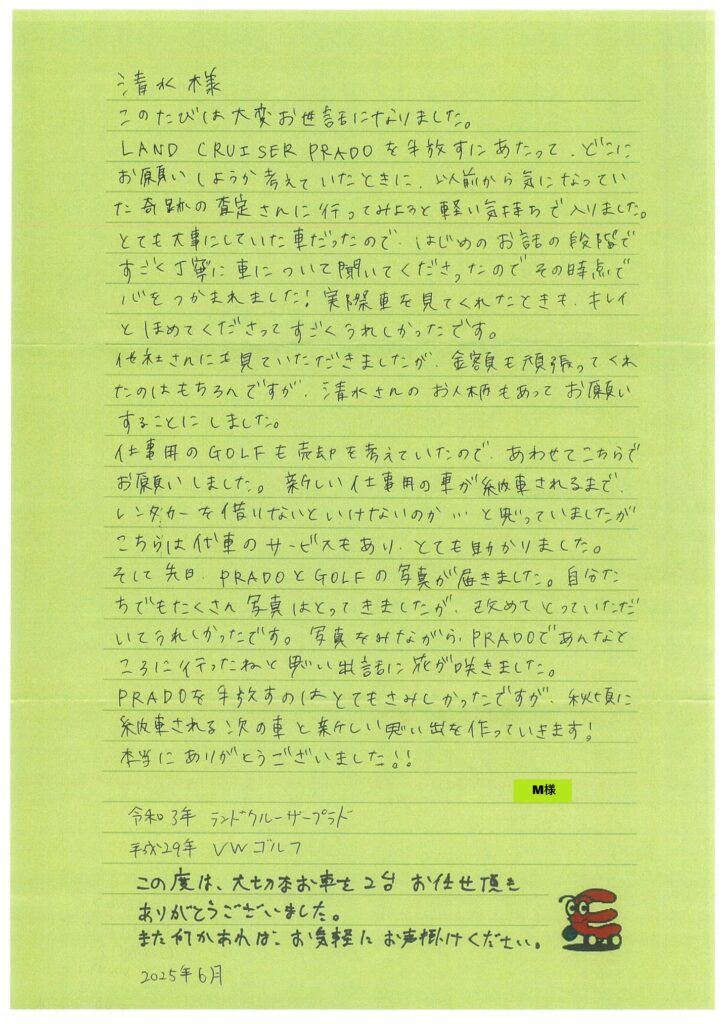 清水様
このたびは大変お世話になりました。
LAND CRUISER PRADOを手放すにあたって、どこに
お願いしようか考えていたときに、以前から気になってい
た奇跡の査定さんに行ってみようと軽い気持ちで入りました。
とても大事にしていた車だったので、はじめのお話の段階で
すごく丁寧に車について聞いてくださったのでその時点で
心をつかまれました！実際車を見てくれたときも、キレイ
とほめてくださってすごくうれしかったです。
他社さんにも見ていただきましたが、金額も頑張ってくれ
たのはもちろんですが、清水さんのお人柄もあってお願い
することにしました。
仕事用のGOLFも売却を考えていたので、あわせてこちらで
お願いしました。新しい仕事用の車が納車されるまで、
レンタカーを借りないといけないのか…と思っていましたが
こちらは代車のサービスもあり、とても助かりました。
そして先日、PRADOとGOLFの写真が届きました。自分た
ちでもたくさん写真はとってきましたが、改めてとっていただ
いてうれしかったです。写真をみながら、PRADOであんなと
ころに行ったねと思い出話に花が咲きました。
PRADOを手放すのはとてもさみしかったですが、秋頃に
納車される次の車と新しい思い出を作っていきます！
本当にありがとうございました！！
M様
令和3年 ランドクルーザープラド
平成29年 VWゴルフ
この度は、大切なお車を2台 お任せ頂き
ありがとうございました。
また何かあれば、お気軽にお声掛けください。
2025年6月